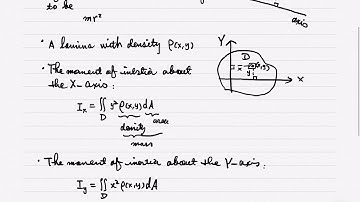 to be
mr²
axis
• A lamina with density ρ(x,y)
Y
D
x
(x,y)
y
X
• The moment of inertia about
the X-axis:
I_x = ∬_D y² ρ(x,y) dA
density area
mass
• The moment of inertia about the Y-axis:
I_y = ∬_D x² ρ(x,y) dA